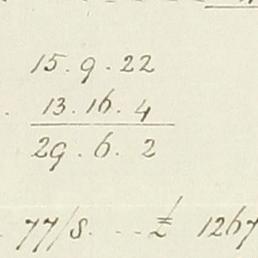 15.9.22
. 13.16.4
29.6.2
77/s. --- £ 1267